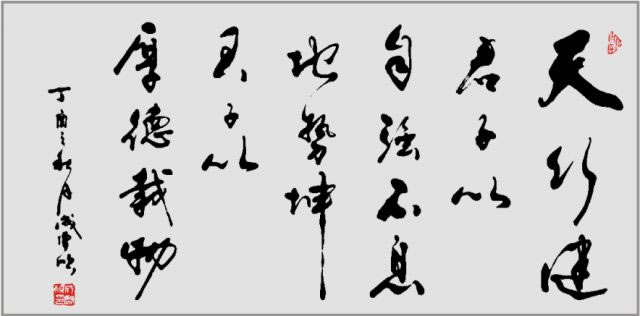 天行健
君子以
自强不息
地势坤
君子以
厚德载物
丁酉之秋月